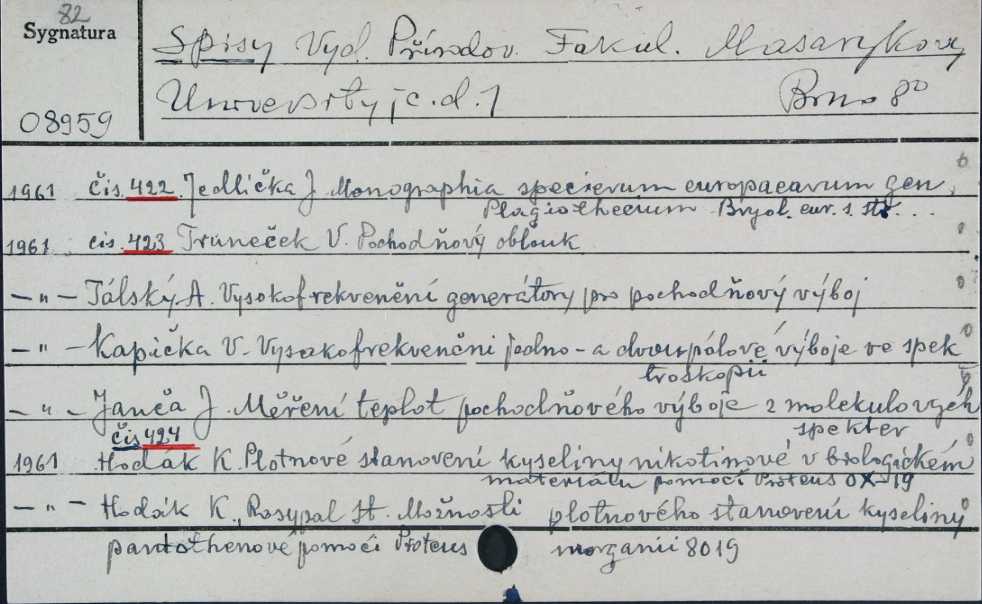 82
Sygnatura
08959
Spisy Vyd. Přírodov. Fakul. Masarykovy
University c.d. 1 Brno 8°
1961 čis. 422. Jedlička J. Monographia specierum europaearum gen.
Plagiothecium Bryol. eur. s. str. . . .
1961 cis. 423 Truneček V. Pochodňový oblouk
— " — Tálský A. Vysokofrekvenční generátory pro pochodňový výboj
— " — Kapička V. Vysokofrekvenčni jedno - a dvoupólové výboje ve spek
troskopii
— " — Janča J. Měření teplot pochodňového výboje z molekulových
spekter
čis 424
1961 Hodák K. Plotnové stanovení kyseliny nikotinové v biologickém
materiálu pomocí Proteus OX-19
— " — Hodák K., Rosypal St. Možnosti plotnového stanovení kyseliny
pantothenové pomocí Proteus morganii 8019